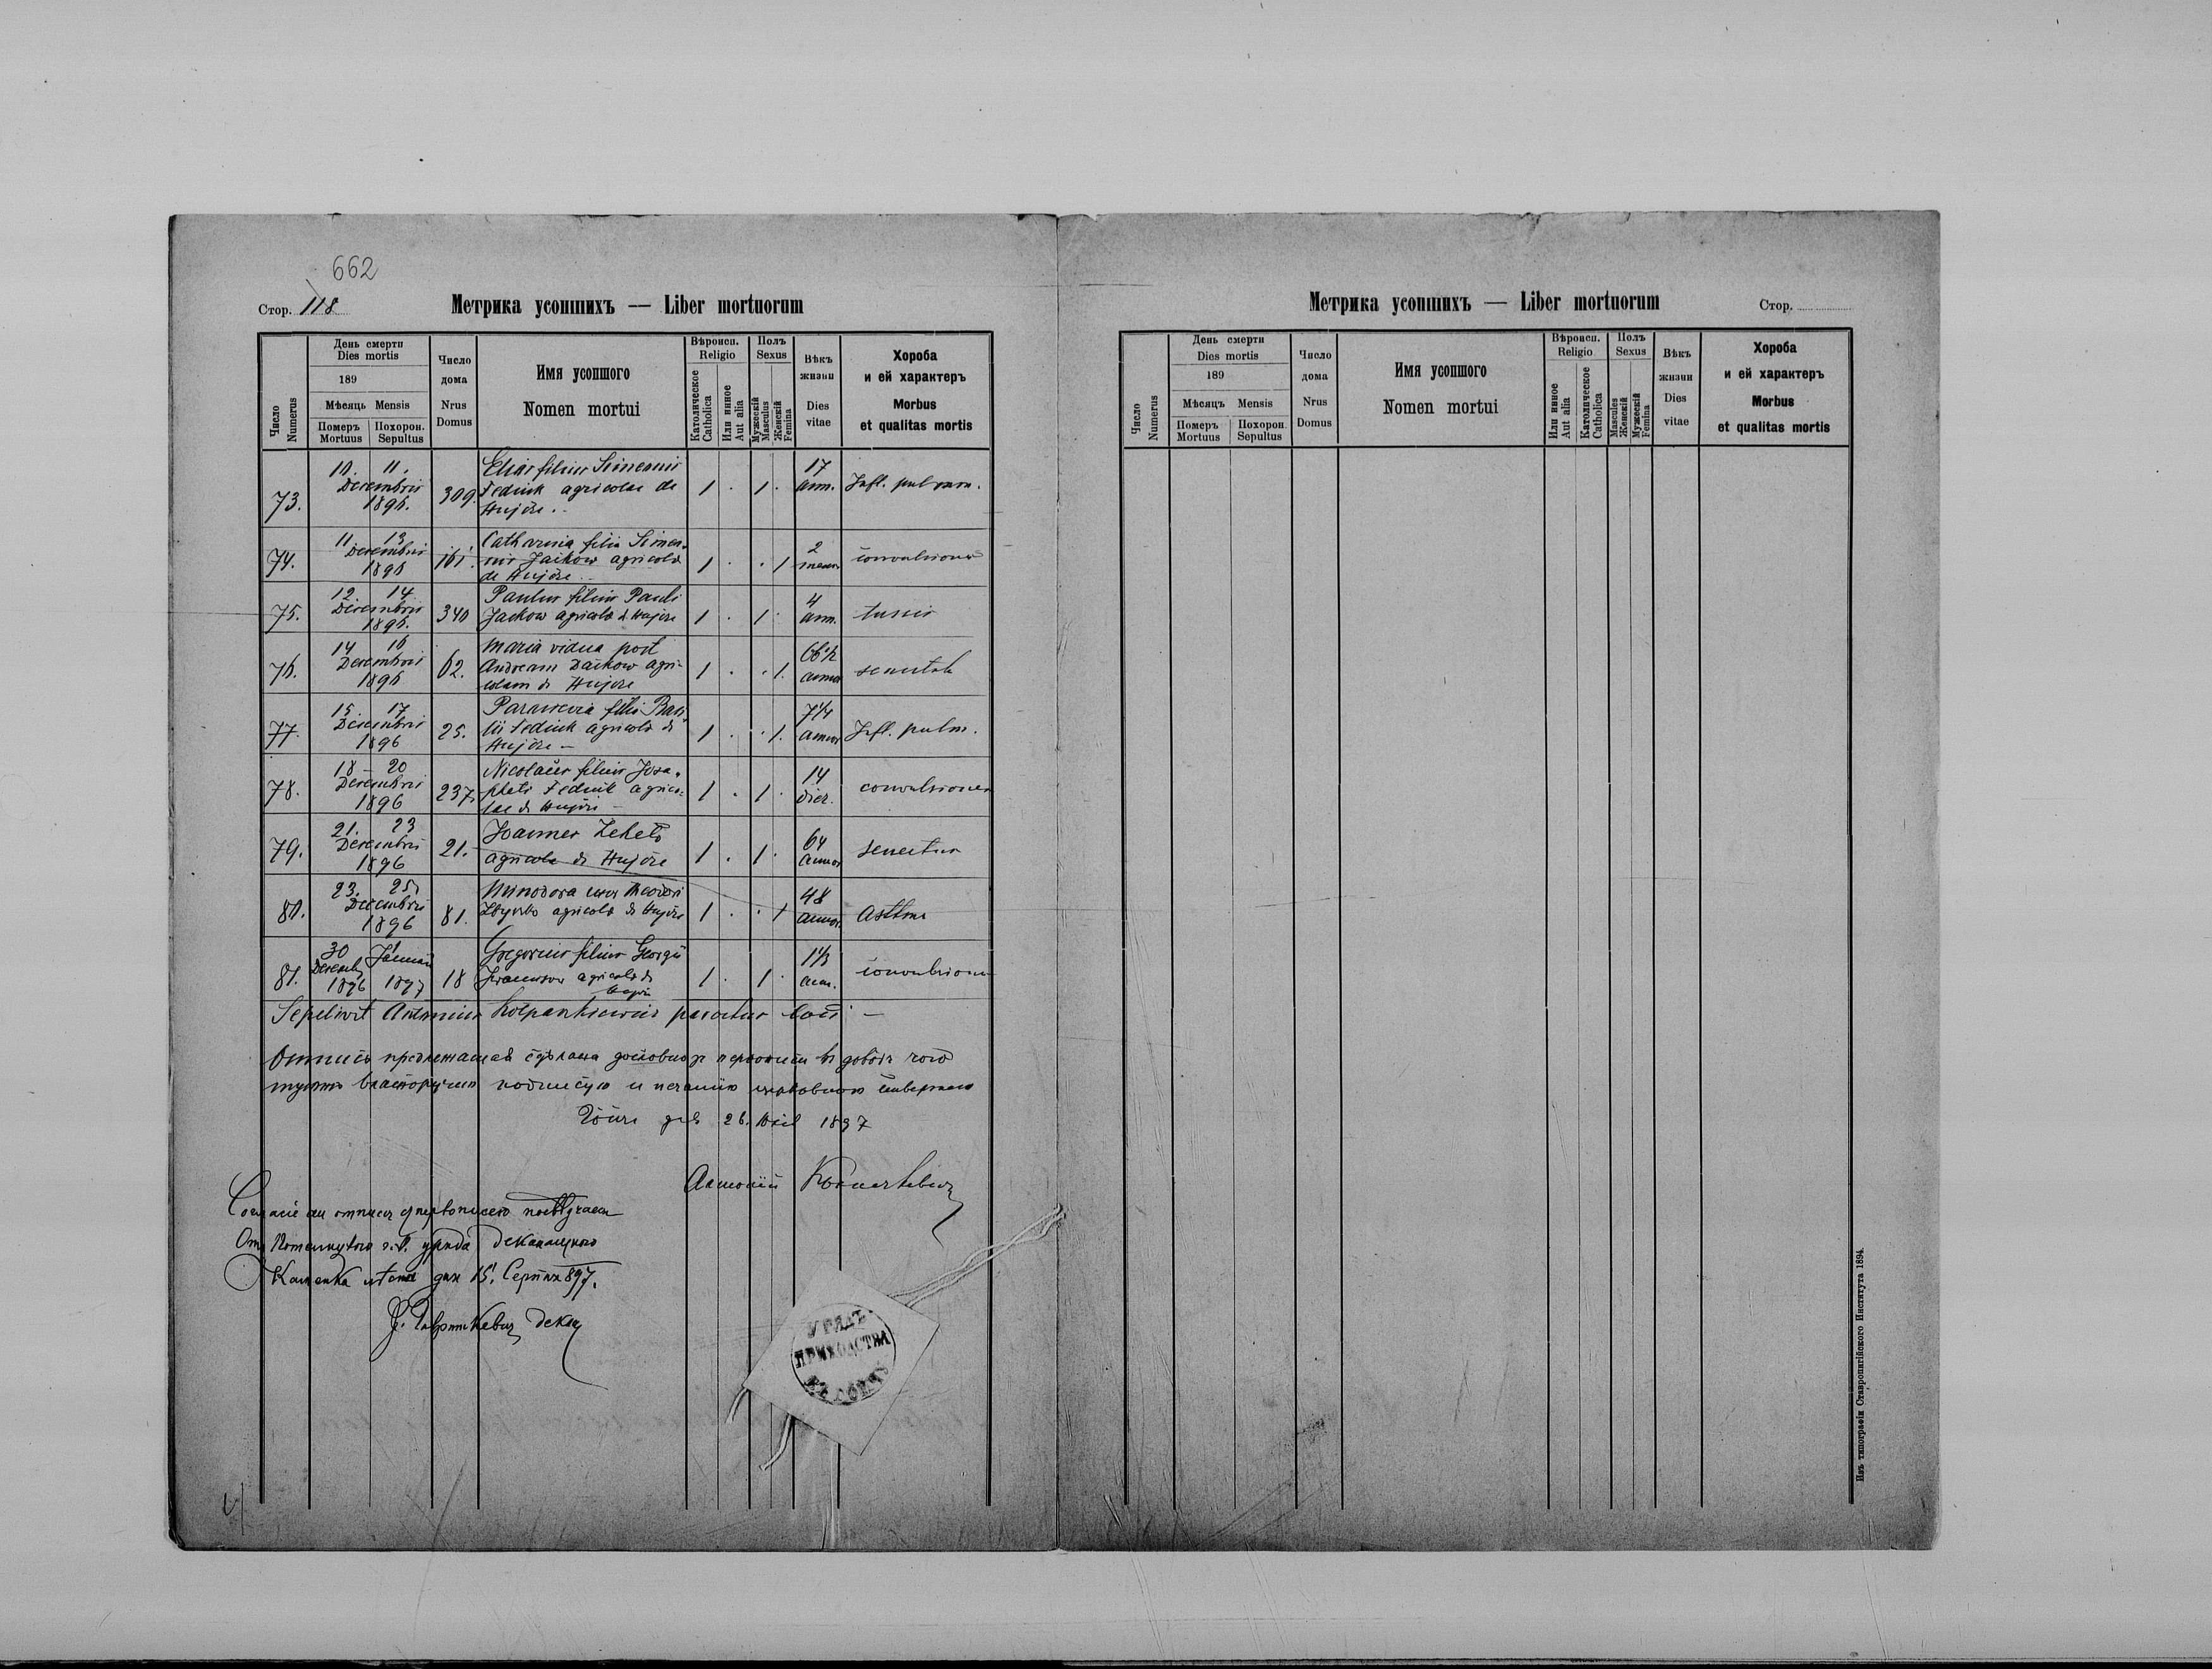 662
Стор. 118
Метрика усопшихъ — Liber mortuorum
Число Numerus
День смерти Dies mortis
189
Мѣсяць Mensis
Померъ Mortuus
Похорон. Sepultus
Число дома Nrus Domus
Имя усопшого Nomen mortui
Вѣроисп. Religio
Католическое Catholica
Или инное Aut alia
Полъ Sexus
Мужескій Masculus
Женскій Femina
Вѣкъ жизни Dies vitae
Хороба и ей характеръ Morbus et qualitas mortis
73. 10. 11. Decembris 1896. 309. Elias filius Simeonis
Fediuk agricolae de
Hujcze. 1 . 1 . 17 ann. Infl. pulmon.
74. 11 13 Decembris 1896 161. Catharina filia Simeo-
nis Jaćkow agricola
de Hujcze 1 . . 1 2 mens. convulsiones
75. 12 14 Decembris 1896. 340 Paulus filius Pauli
Jackow agricola d Hujcze 1 . 1 4 ann. tussis
76. 14 16 Decembris 1896 62. Maria vidua post
Andream Dackow agri-
colam d Hujcze 1 . . 1. 66 1/2 annor
77. 15. 17 Decembris 1896 25. Parascevia filia Basi
lii Fediuk agricola d
Hujcze — 1 . . 1. 7 1/4 annor Infl. pulm.
78. 18 — 20 Decembris 1896 237. Nicolaus filius Josa-
phati Fediuk agrico-
lae d Hujcze — 1 . 1 . 14 dier. convulsiones
79. 21. 23 Decembris 1896 21. Joannes
agricola d Hujcze 1 . 1 . 64 annor senectus
80. 23. 25. Decembris 1896 81. Minodora uxor Theodori
agricola d Hujcze 1 . . 1 48 annor. Asthma
81. 30 Decemb 1896 1 Januarii 1897 18 Gregorius filius Georgii
agricola d
Hujcze 1 . 1 . 1 1/3 ann. convulsiones
Sepelivit Antonius parochus loci —
Отпись предлежащая сдѣлана дословно зъ первописи въ довôдъ чого
власноручно подписую и печатію церковною
дня 26. 1897
Антоній
отписи съ первописею
Отъ уряда деканального
Каменка дня 15. Серпня 897.
декан
УРЯДЪ
ПРИХОДСТВА
Метрика усопшихъ — Liber mortuorum
Стор.
Число Numerus
День смерти Dies mortis
189
Мѣсяцъ Mensis
Померъ Mortuus
Похорон. Sepultus
Число дома Nrus Domus
Имя усопшого Nomen mortui
Вѣроисп. Religio
Или инное Aut alia
Католическое Catholica
Полъ Sexus
Masculus Женскій
Мужескій Femina
Вѣкъ жизни Dies vitae
Хороба и ей характеръ Morbus et qualitas mortis
Изъ типографіи Ставропигійского Института 1894.